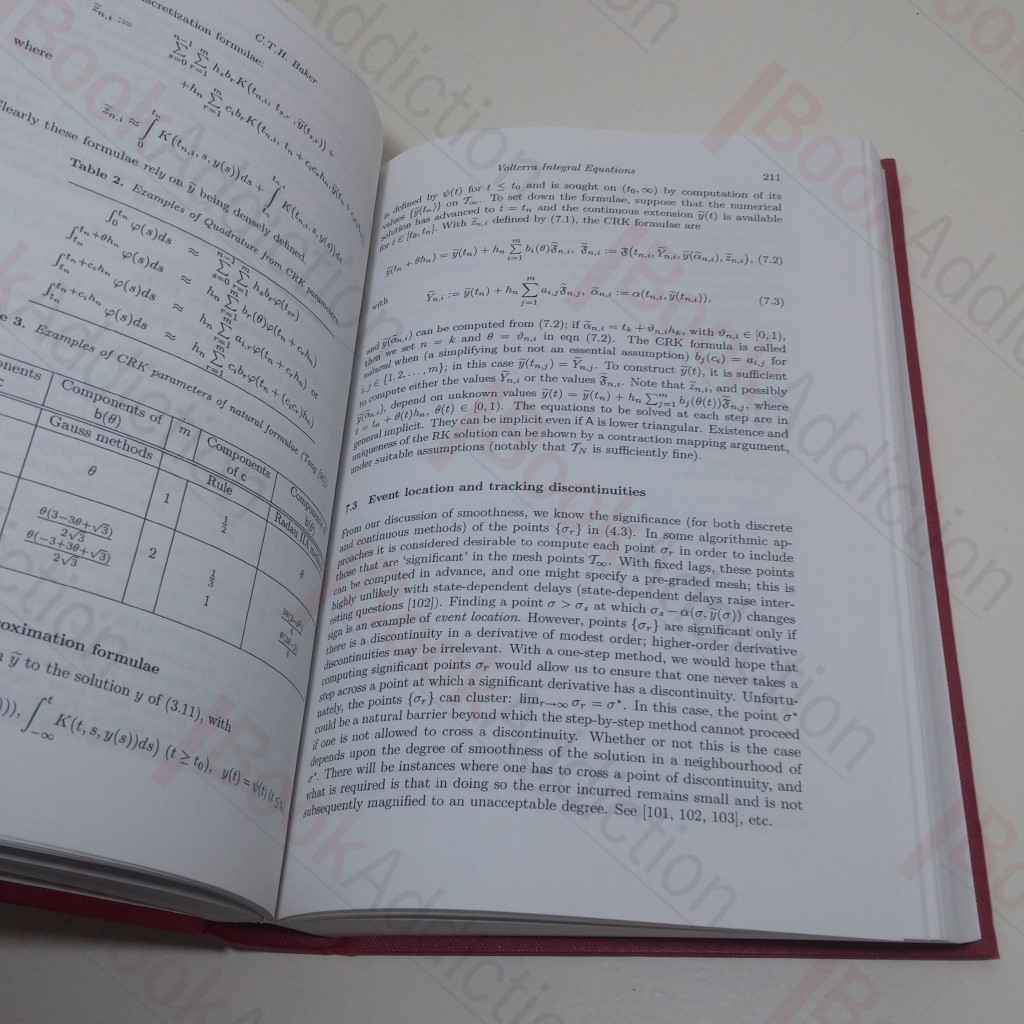 C.T.H. Baker
discretization formulae:
z̃_{n,i} :=
\sum_{s=0}^{n-1} \sum_{r=1}^{m} h_s b_r K(t_{n,i}, t_{s,r}, ỹ(t_{s,r})) +
+h_n \sum_{r=1}^{m} c_i b_r K(t_{n,i}, t_n + c_i c_r h_n, ỹ(t_n + c_i c_r h_n))
where
z̃_{n,i} ≈ \int_0^{t_n} K(t_{n,i}, s, y(s))ds + \int_{t_n}^{t_{n,i}} K(t_{n,i}, s, y(s))ds
Clearly these formulae rely on ỹ being densely defined.
Table 2. Examples of Quadrature from CRK parameters
\int_0^{t_n} φ(s)ds ≈ \sum_{s=0}^{n-1} \sum_{r=1}^{m} h_s b_r φ(t_{sr})
\int_{t_n}^{t_n+θh_n} φ(s)ds ≈ h_n \sum_{r=1}^{m} b_r(θ)φ(t_n + c_r h_n)
\int_{t_n}^{t_n+c_i h_n} φ(s)ds ≈ h_n \sum_{r=1}^{m} a_{i,r} φ(t_n + c_r h_n) or
\int_{t_n}^{t_n+c_i h_n} φ(s)ds ≈ h_n \sum_{r=1}^{m} c_i b_r φ(t_n + (c_i c_r)h_n)
3. Examples of CRK parameters of natural formulae
Components of b(θ) m Components of c
Gauss methods Rule Radau IIA
θ 1 1/2 θ
θ(3−3θ+√3)/2√3
θ(−3+3θ+√3)/2√3
2 1/3
1
approximation formulae
ỹ to the solution y of (3.11), with
))), \int_{-∞}^{t} K(t, s, y(s))ds) (t ≥ t_0), y(t) = ψ(t)
Volterra Integral Equations 211
is defined by ψ(t) for t ≤ t_0 and is sought on (t_0, ∞) by computation of its
values {ỹ(t_n)} on T_∞. To set down the formulae, suppose that the numerical
solution has advanced to t = t_n and the continuous extension ỹ(t) is available
for t ∈ [t_0, t_n]. With z̃_{n,i} defined by (7.1), the CRK formulae are
ỹ(t_n + θh_n) = ỹ(t_n) + h_n \sum_{i=1}^{m} b_i(θ)𝔉̃_{n,i}, 𝔉̃_{n,i} := 𝔉(t_{n,i}, Ỹ_{n,i}, ỹ(α̃_{n,i}), z̃_{n,i}), (7.2)
with Ỹ_{n,i} := ỹ(t_n) + h_n \sum_{j=1}^{m} a_{i,j}𝔉̃_{n,j}, α̃_{n,i} := α(t_{n,i}, ỹ(t_{n,i})), (7.3)
and ỹ(α̃_{n,i}) can be computed from (7.2); if α̃_{n,i} = t_k + ϑ_{n,i}h_k, with ϑ_{n,i} ∈ [0, 1),
then we set n = k and θ = ϑ_{n,i} in eqn (7.2). The CRK formula is called
natural when (a simplifying but not an essential assumption) b_j(c_i) = a_{i,j} for
i, j ∈ {1, 2, . . . , m}; in this case ỹ(t_{n,j}) = Ỹ_{n,j}. To construct ỹ(t), it is sufficient
to compute either the values Ỹ_{n,i} or the values 𝔉̃_{n,i}. Note that z̃_{n,i}, and possibly
ỹ(α̃_{n,i}), depend on unknown values ỹ(t) = ỹ(t_n) + h_n \sum_{j=1}^{m} b_j(θ(t))𝔉̃_{n,j}, where
t = t_n + θ(t)h_n, θ(t) ∈ [0, 1). The equations to be solved at each step are in
general implicit. They can be implicit even if A is lower triangular. Existence and
uniqueness of the RK solution can be shown by a contraction mapping argument,
under suitable assumptions (notably that T_N is sufficiently fine).
7.3 Event location and tracking discontinuities
From our discussion of smoothness, we know the significance (for both discrete
and continuous methods) of the points {σ_r} in (4.3). In some algorithmic ap-
proaches it is considered desirable to compute each point σ_r in order to include
those that are ‘significant’ in the mesh points T_∞. With fixed lags, these points
can be computed in advance, and one might specify a pre-graded mesh; this is
highly unlikely with state-dependent delays (state-dependent delays raise inter-
esting questions [102]). Finding a point σ > σ_s at which σ_s − α(σ, ỹ(σ)) changes
sign is an example of event location. However, points {σ_r} are significant only if
there is a discontinuity in a derivative of modest order; higher-order derivative
discontinuities may be irrelevant. With a one-step method, we would hope that
computing significant points σ_r would allow us to ensure that one never takes a
step across a point at which a significant derivative has a discontinuity. Unfortu-
nately, the points {σ_r} can cluster: lim_{r→∞} σ_r = σ*. In this case, the point σ*
could be a natural barrier beyond which the step-by-step method cannot proceed
if one is not allowed to cross a discontinuity. Whether or not this is the case
depends upon the degree of smoothness of the solution in a neighbourhood of
σ*. There will be instances where one has to cross a point of discontinuity, and
what is required is that in doing so the error incurred remains small and is not
subsequently magnified to an unacceptable degree. See [101, 102, 103], etc.
BookAddiction